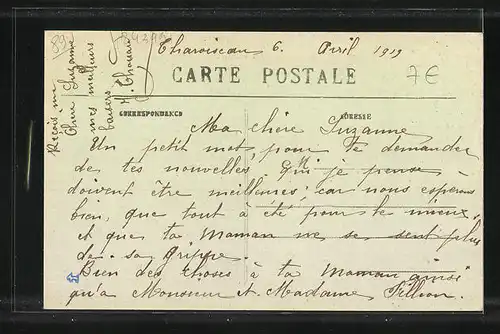 89
84395
Charviseau 6. Avril 1919
CARTE POSTALE
7€
CORRESPONDANCE
ADRESSE
Ma chère Suzanne
Un petit mot, pour te demander
de tes nouvelles, qui je pense
doivent être meilleures; car nous espérons
bien, que tout à été pour le mieux
et que ta Maman ne se sent plus
de sa grippe.
Bien des choses à ta Maman ainsi
qu'à Monsieur et Madame Fillion.
Reçois, ma
chère Suzanne
mes meilleurs
baisers